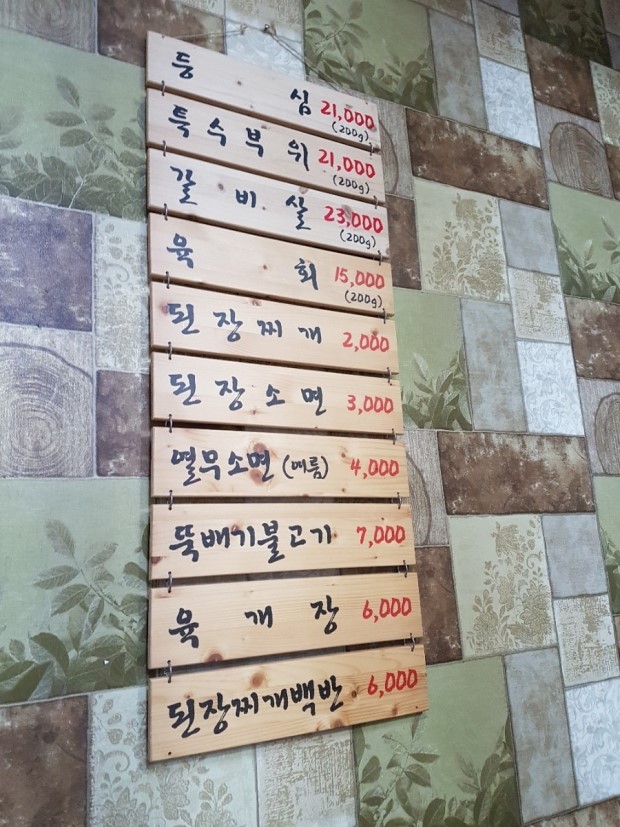 등 심 21,000
(200g)
특수부위 21,000
(200g)
갈비살 23,000
(200g)
육 회 15,000
(200g)
된장찌개 2,000
된장소면 3,000
열무소면 (여름) 4,000
뚝배기불고기 7,000
육 개 장 6,000
된장찌개백반 6,000